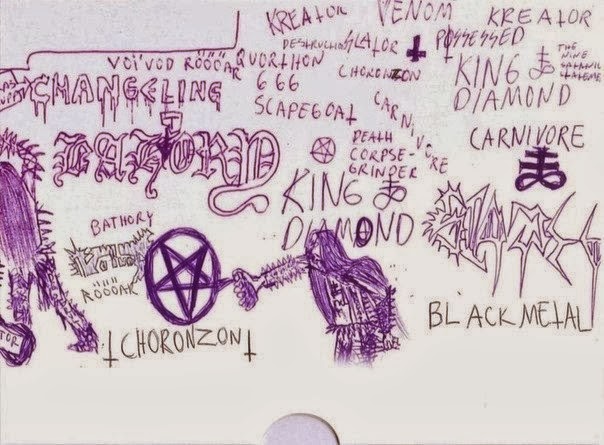 KREATOR
VENOM
KREATOR
DESTRUCTION
SLÄTOR
POSSESSED
VOI'VOD RÖÖÖAR
QUORTHON
666
SCAPEGOAT
CHORONZON
KING
DIAMOND
THE
NINE
SATANIC
CHANGELING
CARNIVORE
CARNIVORE
DEATH
CORPSE-
GRINDER
BATHORY
KING
DIAMOND
BATHORY
RÖÖÖAR
CHORONZON
BLACK METAL
TOR